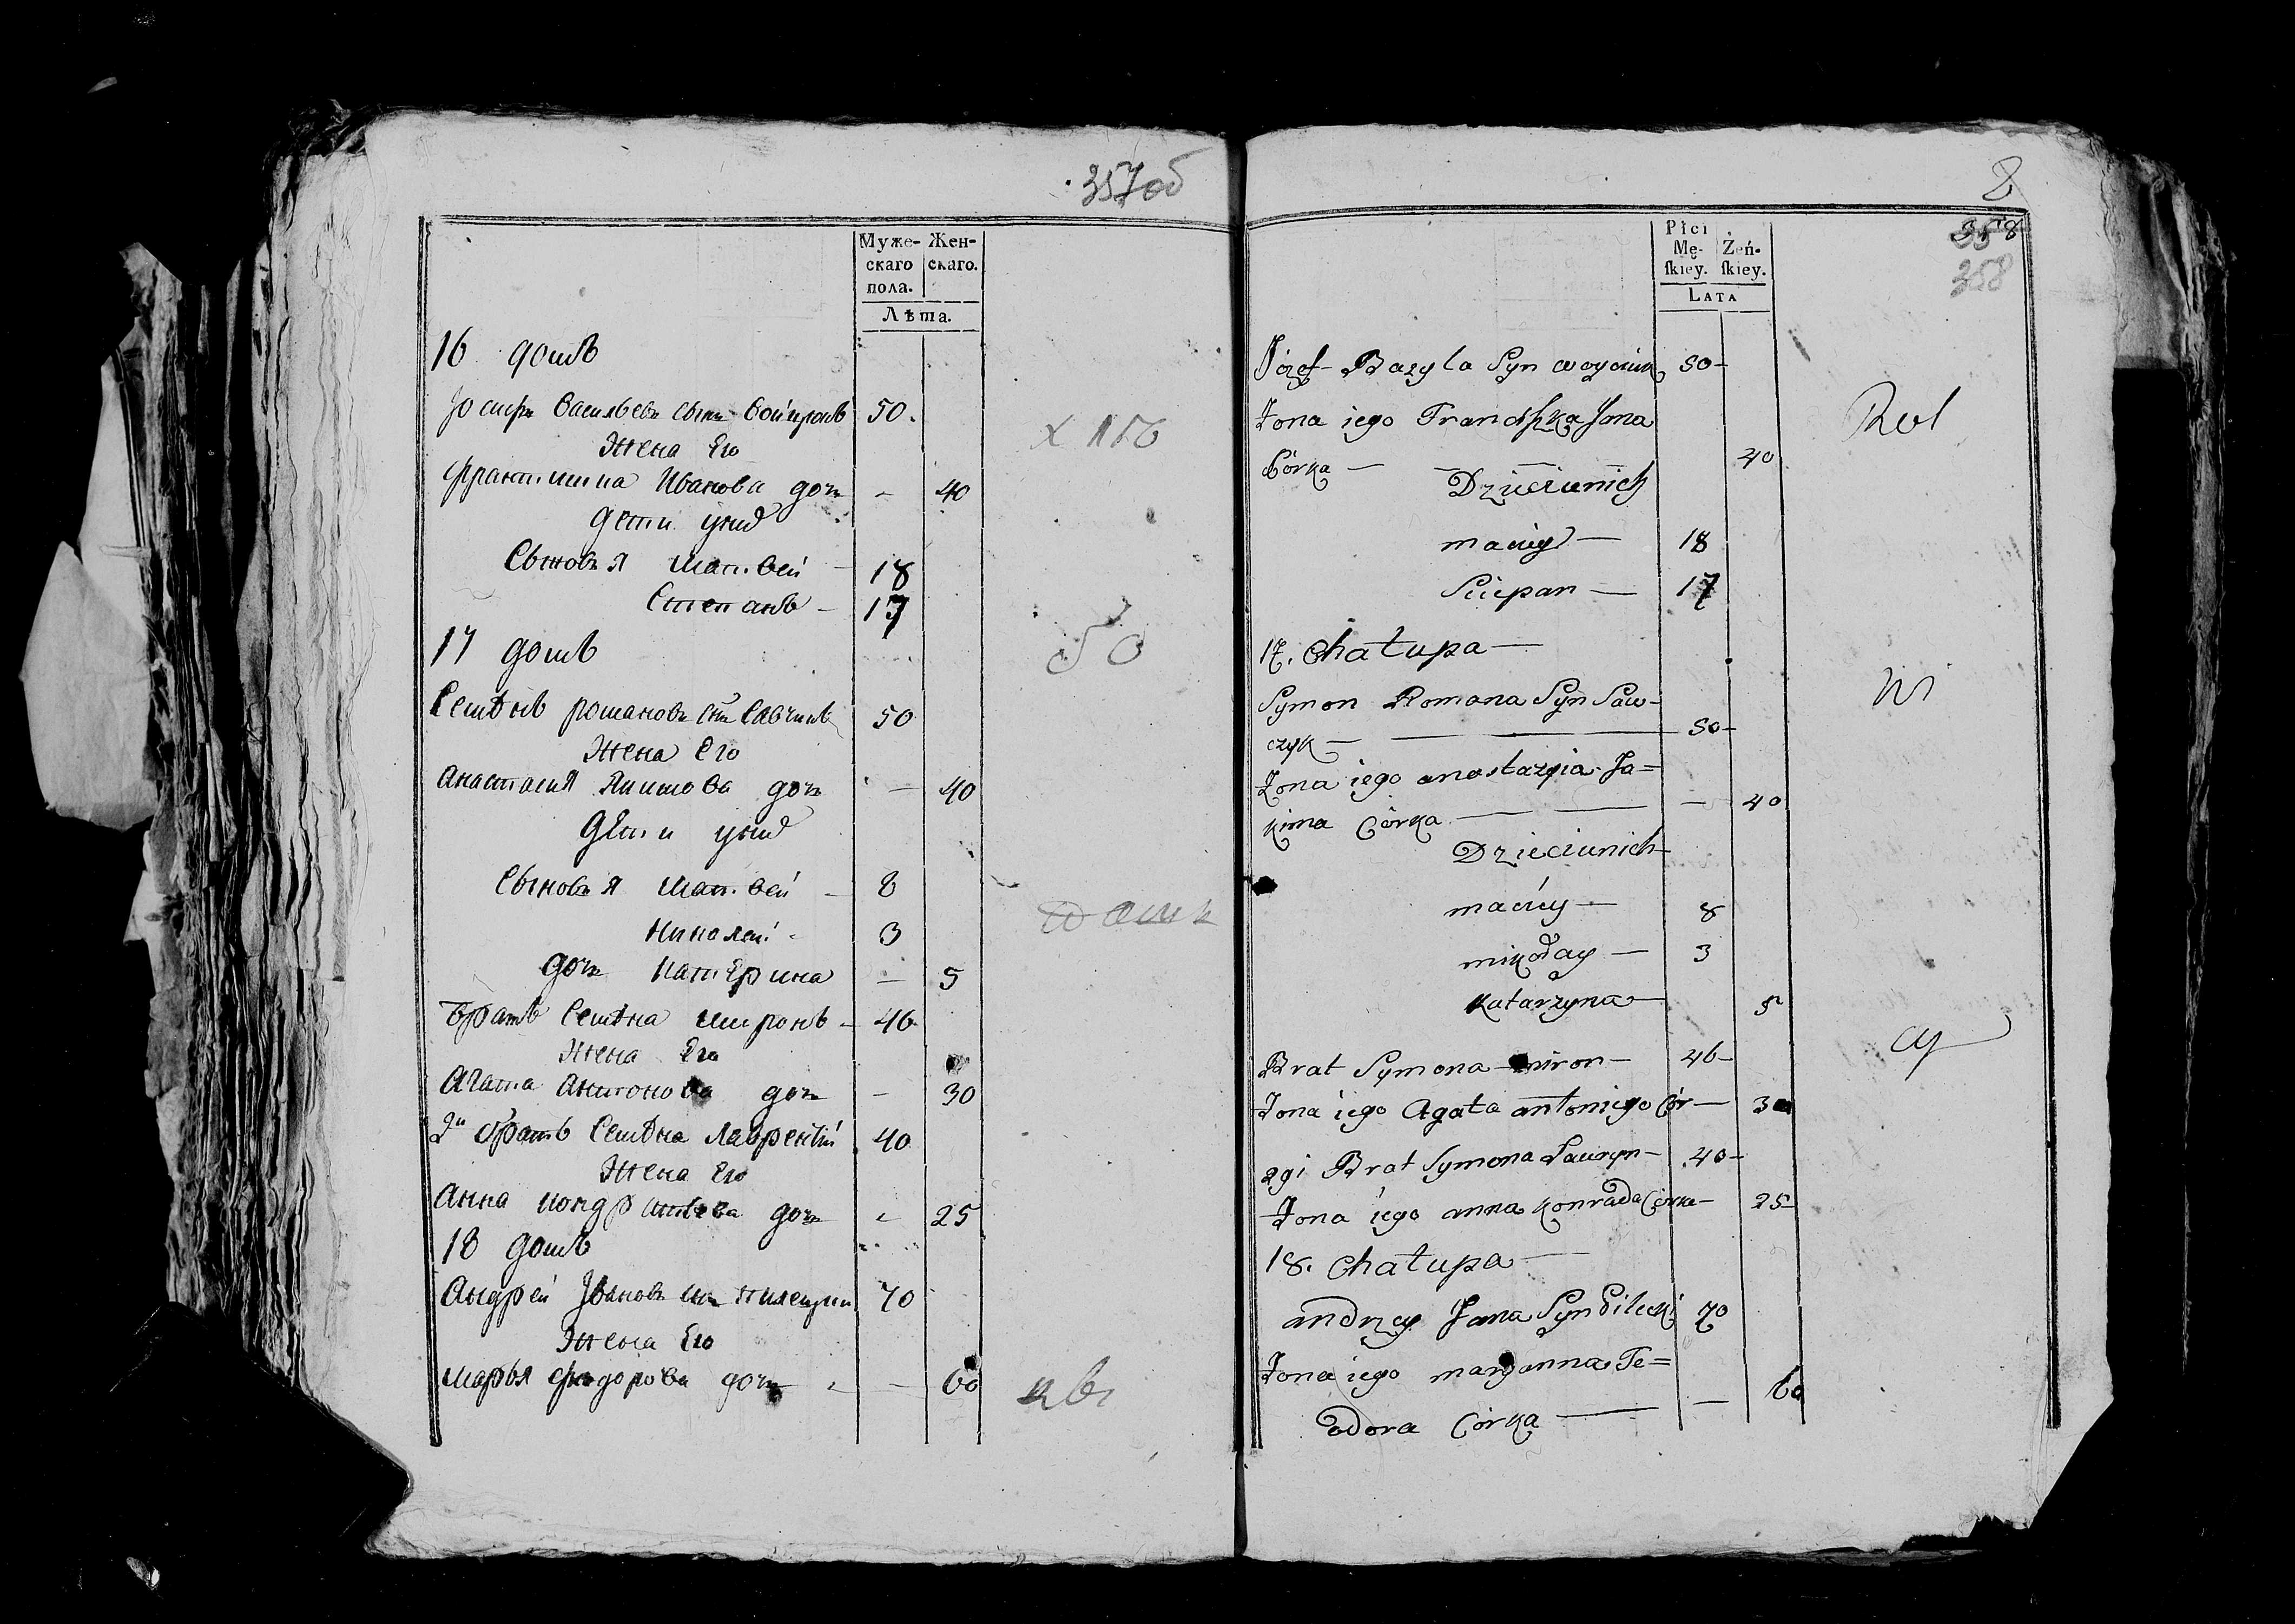 357об
Муже- Жен-
скаго скаго.
пола.
Лѣта.
16 домъ
Іосифъ Васильевъ сынъ Войцюкъ 50.
Жена Его
Франтишка Иванова дочь - 40
Дети ихъ
Сыновья Матвей - 18
Степанъ - 17
17 домъ
Семѣнъ Романовъ сынъ Савчикъ 50
Жена Его
Анастасия Якимова дочь - 40
Дети ихъ
Сыновья Матвей - 8
Николай - 3
дочь Катерина - 5
Братъ Семѣна Миронъ - 46
Жена Его
Агата Антонова дочь - 30
2й братъ Семѣна Лаврентій 40
Жена Его
Анна Кондратьева дочь - 25
18 домъ
Андрей Ивановъ сынъ 70
Жена Его
Марья Фядорова дочь - - 60
8
358
358
Płci
Mę- Żeń-
ſkiey. ſkiey.
Lata
Józef Bazyla Syn Woyciuk 50-
Żona iego Franciszka Jana
Córka — 40
Dzieci ich
Maciey — 18
Sciepan — 17
17. Chałupa —
Symon Romana Syn Saw-
czyk — 50-
Żona iego Anastazyia Ja=
kima Córka — — 40
Dzieci ich
Maciey — 8
Mikołay — 3
Katarzyna — 5
Brat Symona Miron — 46-
Żona iego Agata Antoniego Cór — 30
2gi Brat Symona Lauryn — 40-
Żona iego Anna Konrada Córka — 25
18. Chałupa —
Andrzey Jana Syn Pilecki 70
Żona iego Maryanna Te=
odora Córka — — 60